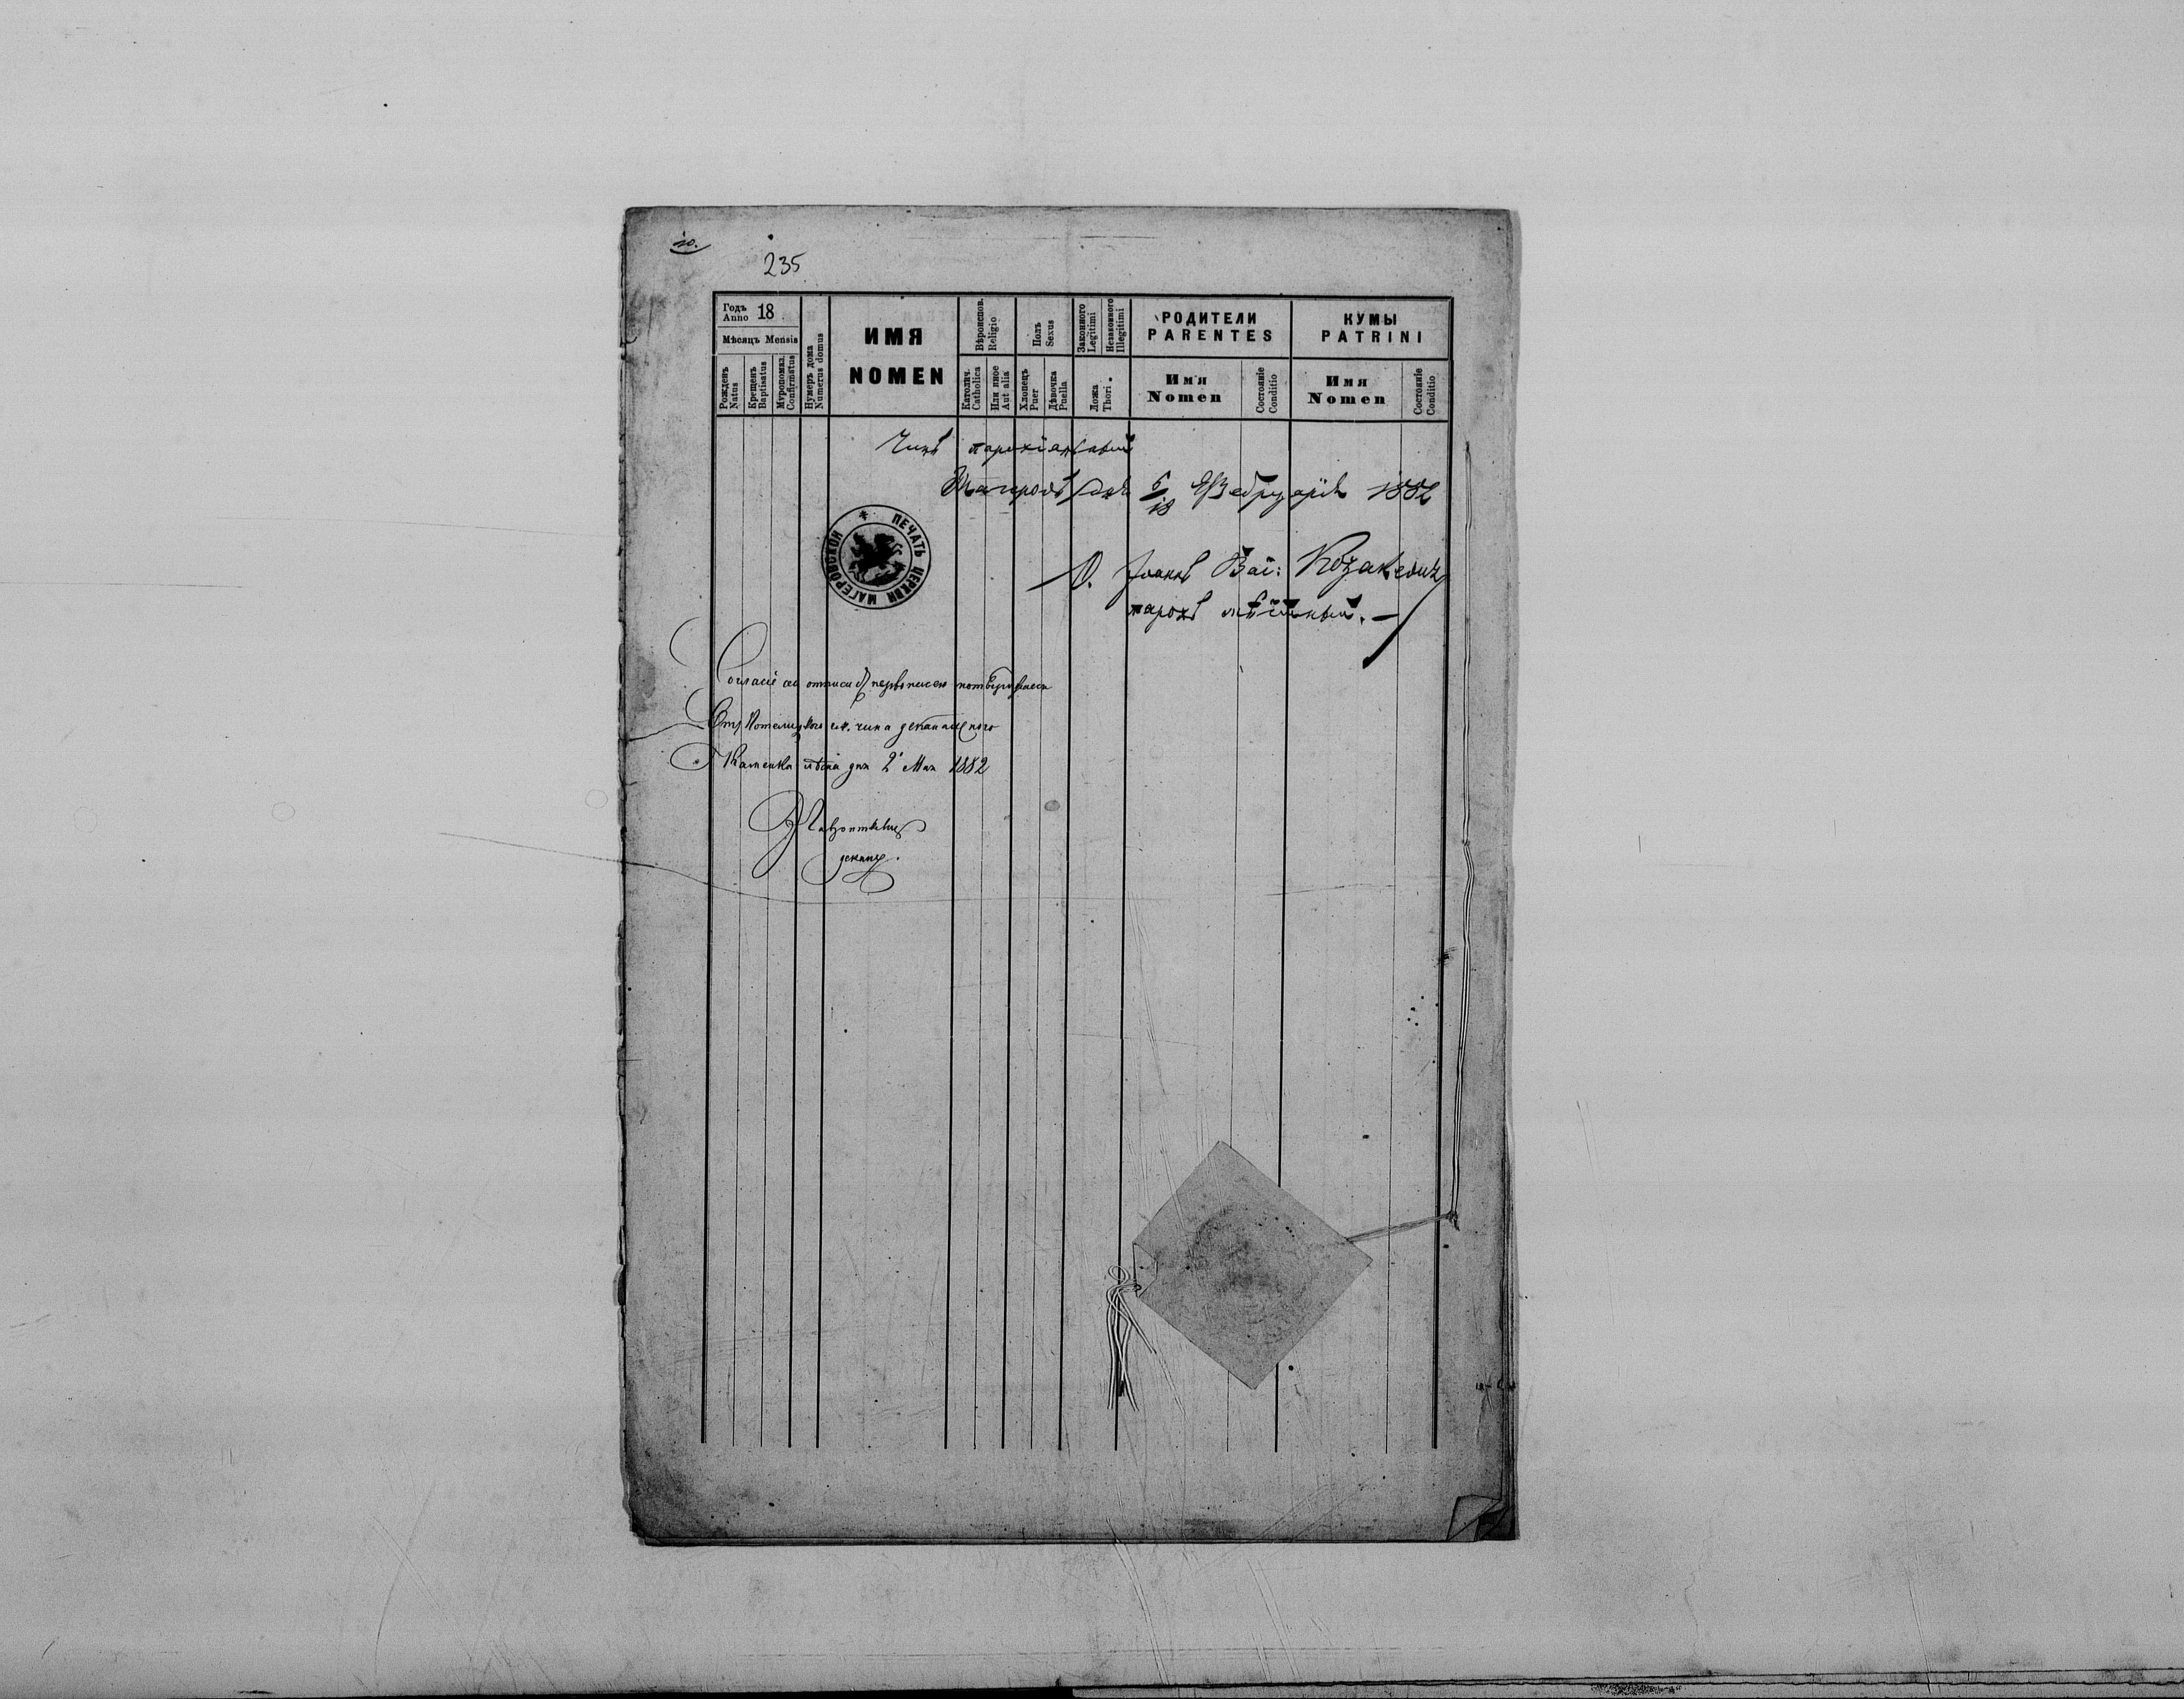 10.
235
Годъ Anno 18
Мѣсяцъ Mensis
Рожденъ Natus
Крещенъ Baptisatus
Мѵропомаз. Confirmatus
Нумеръ дома Numerus domus
ИМЯ
NOMEN
Вѣроиспов. Religio
Католич. Catholica
Или иное Aut alia
Полъ Sexus
Хлопецъ Puer
Дѣвочка Puella
Законного Legitimi
Незаконного Illegitimi
Ложа Thori
РОДИТЕЛИ
PARENTES
Имя
Nomen
Состояніе Conditio
КУМЫ
PATRINI
Имя
Nomen
Состояніе Conditio
Чинъ парохіальный
Магеровъ дня 6/18 Февруарія 1882
ПЕЧАТЬ ЦЕРКВИ МАГЕРОВСКОЙ
О. Іоаннъ Ваі: Козакевичъ
парохъ мѣстный.
Согласіе сеи отписи съ первописею потверждаеся
Отъ Потелицкого чина деканального
Каменка лѣсна дня 2 Мая 1882
деканъ.